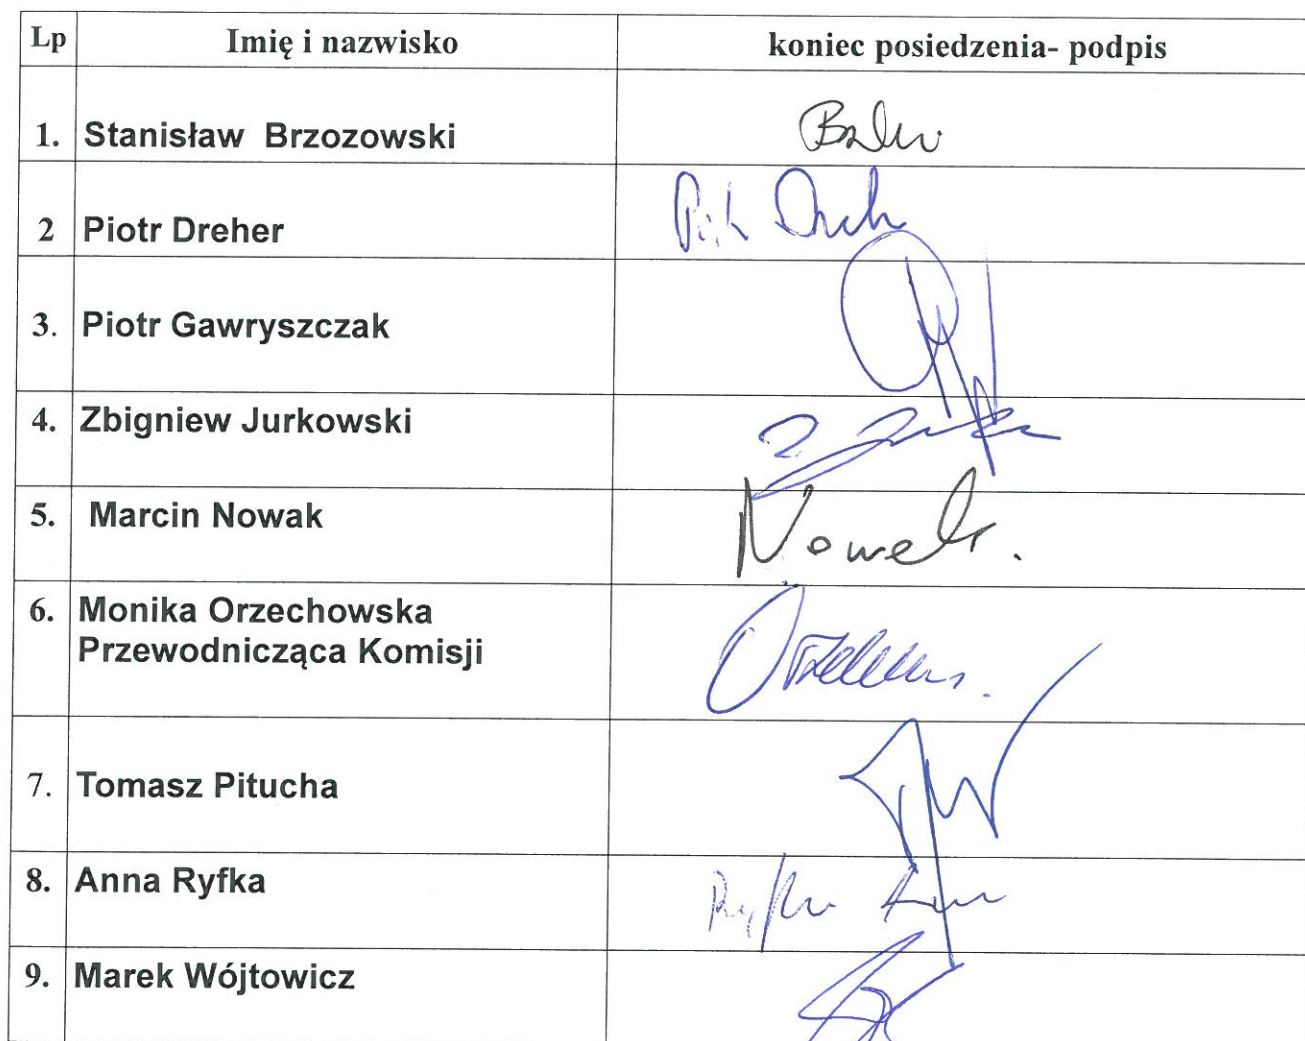 Lp Imię i nazwisko koniec posiedzenia- podpis
1. Stanisław Brzozowski
2 Piotr Dreher
3. Piotr Gawryszczak
4. Zbigniew Jurkowski
5. Marcin Nowak Nowak.
6. Monika Orzechowska
Przewodnicząca Komisji
7. Tomasz Pitucha
8. Anna Ryfka
9. Marek Wójtowicz